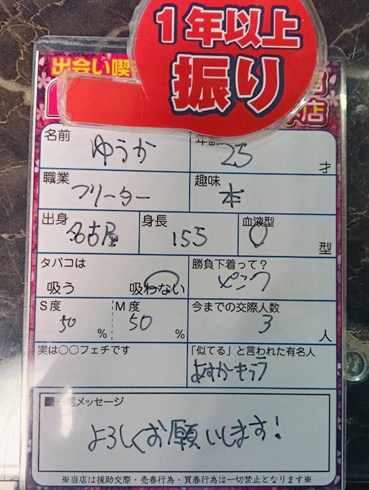 1年以上
振り
出会い喫
店
名前 ゆうか
年齢 25 才
職業 フリーター
趣味 本
出身 名古屋
身長 155
血液型 O 型
タバコは
吸う 吸わない
勝負下着って?
ピンク
S度 50 %
M度 50 %
今までの交際人数
3 人
実は○○フェチです
「似てる」と言われた有名人
あすかキララ
メッセージ
よろしくお願いします!
※当店は援助交際・売春行為・買春行為は一切禁止となります※